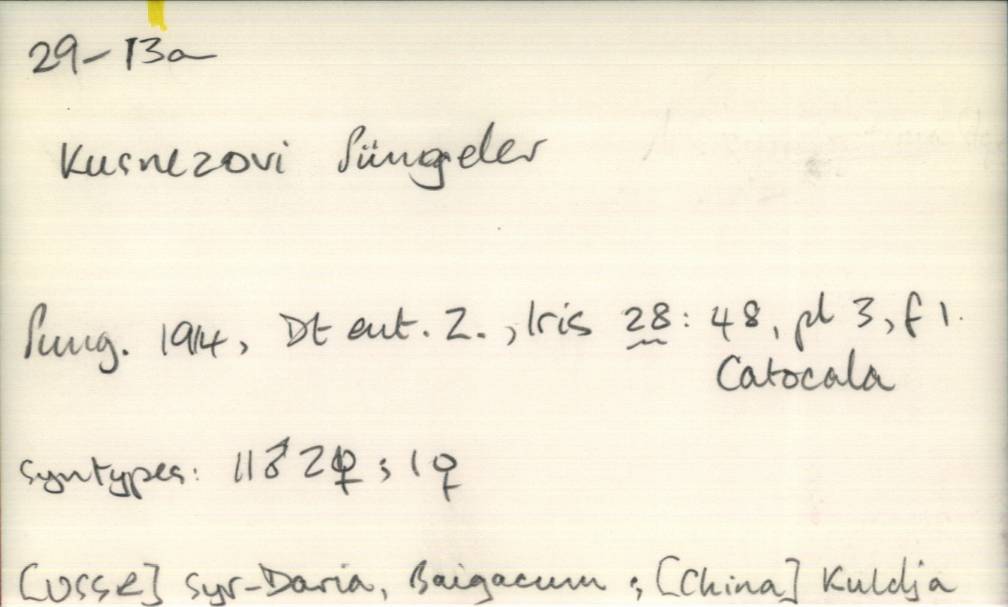 29-13a
Kusnezovi Püngeler
Pung. 1914, Dt ent. Z., Iris 28: 48, pl 3, f 1.
Catocala
syntypes: 11♂ 2♀; 1♀
[USSR] Syr-Daria, Baigacum; [China] Kuldja